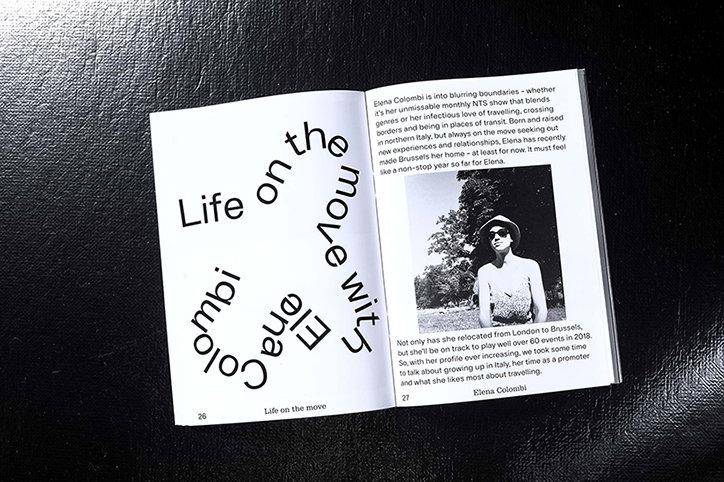 Life on the move with
Elena Colombi
26
Life on the move
Elena Colombi is into blurring boundaries – whether
it's her unmissable monthly NTS show that blends
genres or her infectious love of travelling, crossing
borders and being in places of transit. Born and raised
in northern Italy, but always on the move seeking out
new experiences and relationships, Elena has recently
made Brussels her home – at least for now. It must feel
like a non-stop year so far for Elena.
Not only has she relocated from London to Brussels,
but she'll be on track to play well over 60 events in 2018.
So, with her profile ever increasing, we took some time
to talk about growing up in Italy, her time as a promoter
and what she likes most about travelling.
27
Elena Colombi